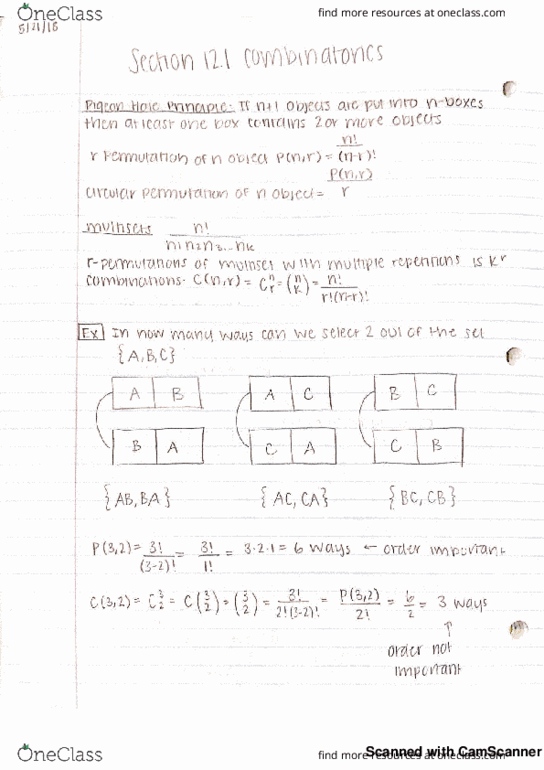 OneClass
find more resources at oneclass.com
5/21/15
Section 12.1 combinatorics
Pigeon Hole Principle: If n+1 objects are put into n-boxes
then atleast one box contains 2 or more objects
r Permutation of n object P(n,r) = n!/(n-r)!
circular permutation of n object = P(n,r)/r
multisets n!/n1n2n3...nk
r-permutations of multiset with multiple repetitions is k^r
combinations: C(n,r) = C^n_r = (n k) = n!/r!(n-r)!
Ex In how many ways can we select 2 out of the set
{A,B,C}
A B A C B C
B A C A C B
{AB, BA} {AC, CA} {BC, CB}
P(3,2) = 3!/(3-2)! = 3!/1! = 3·2·1 = 6 ways ← order important
C(3,2) = C^3_2 = C(3 2) = (3 2) = 3!/2!(3-2)! = P(3,2)/2! = 6/2 = 3 ways
↑
order not
important
OneClass
find more resources at oneclass.com
Scanned with CamScanner